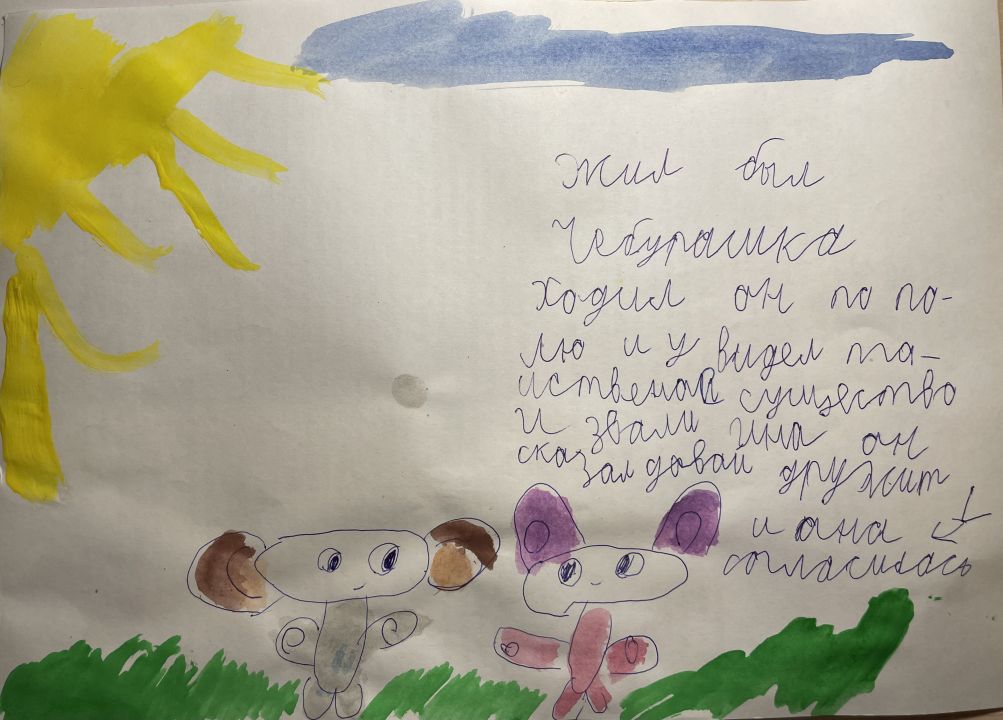 Жил был
Чебурашка
Ходил он по по-
лю и у видел та-
иственоа существо
И звали ина он
сказал довай дружит
и она
согласилась